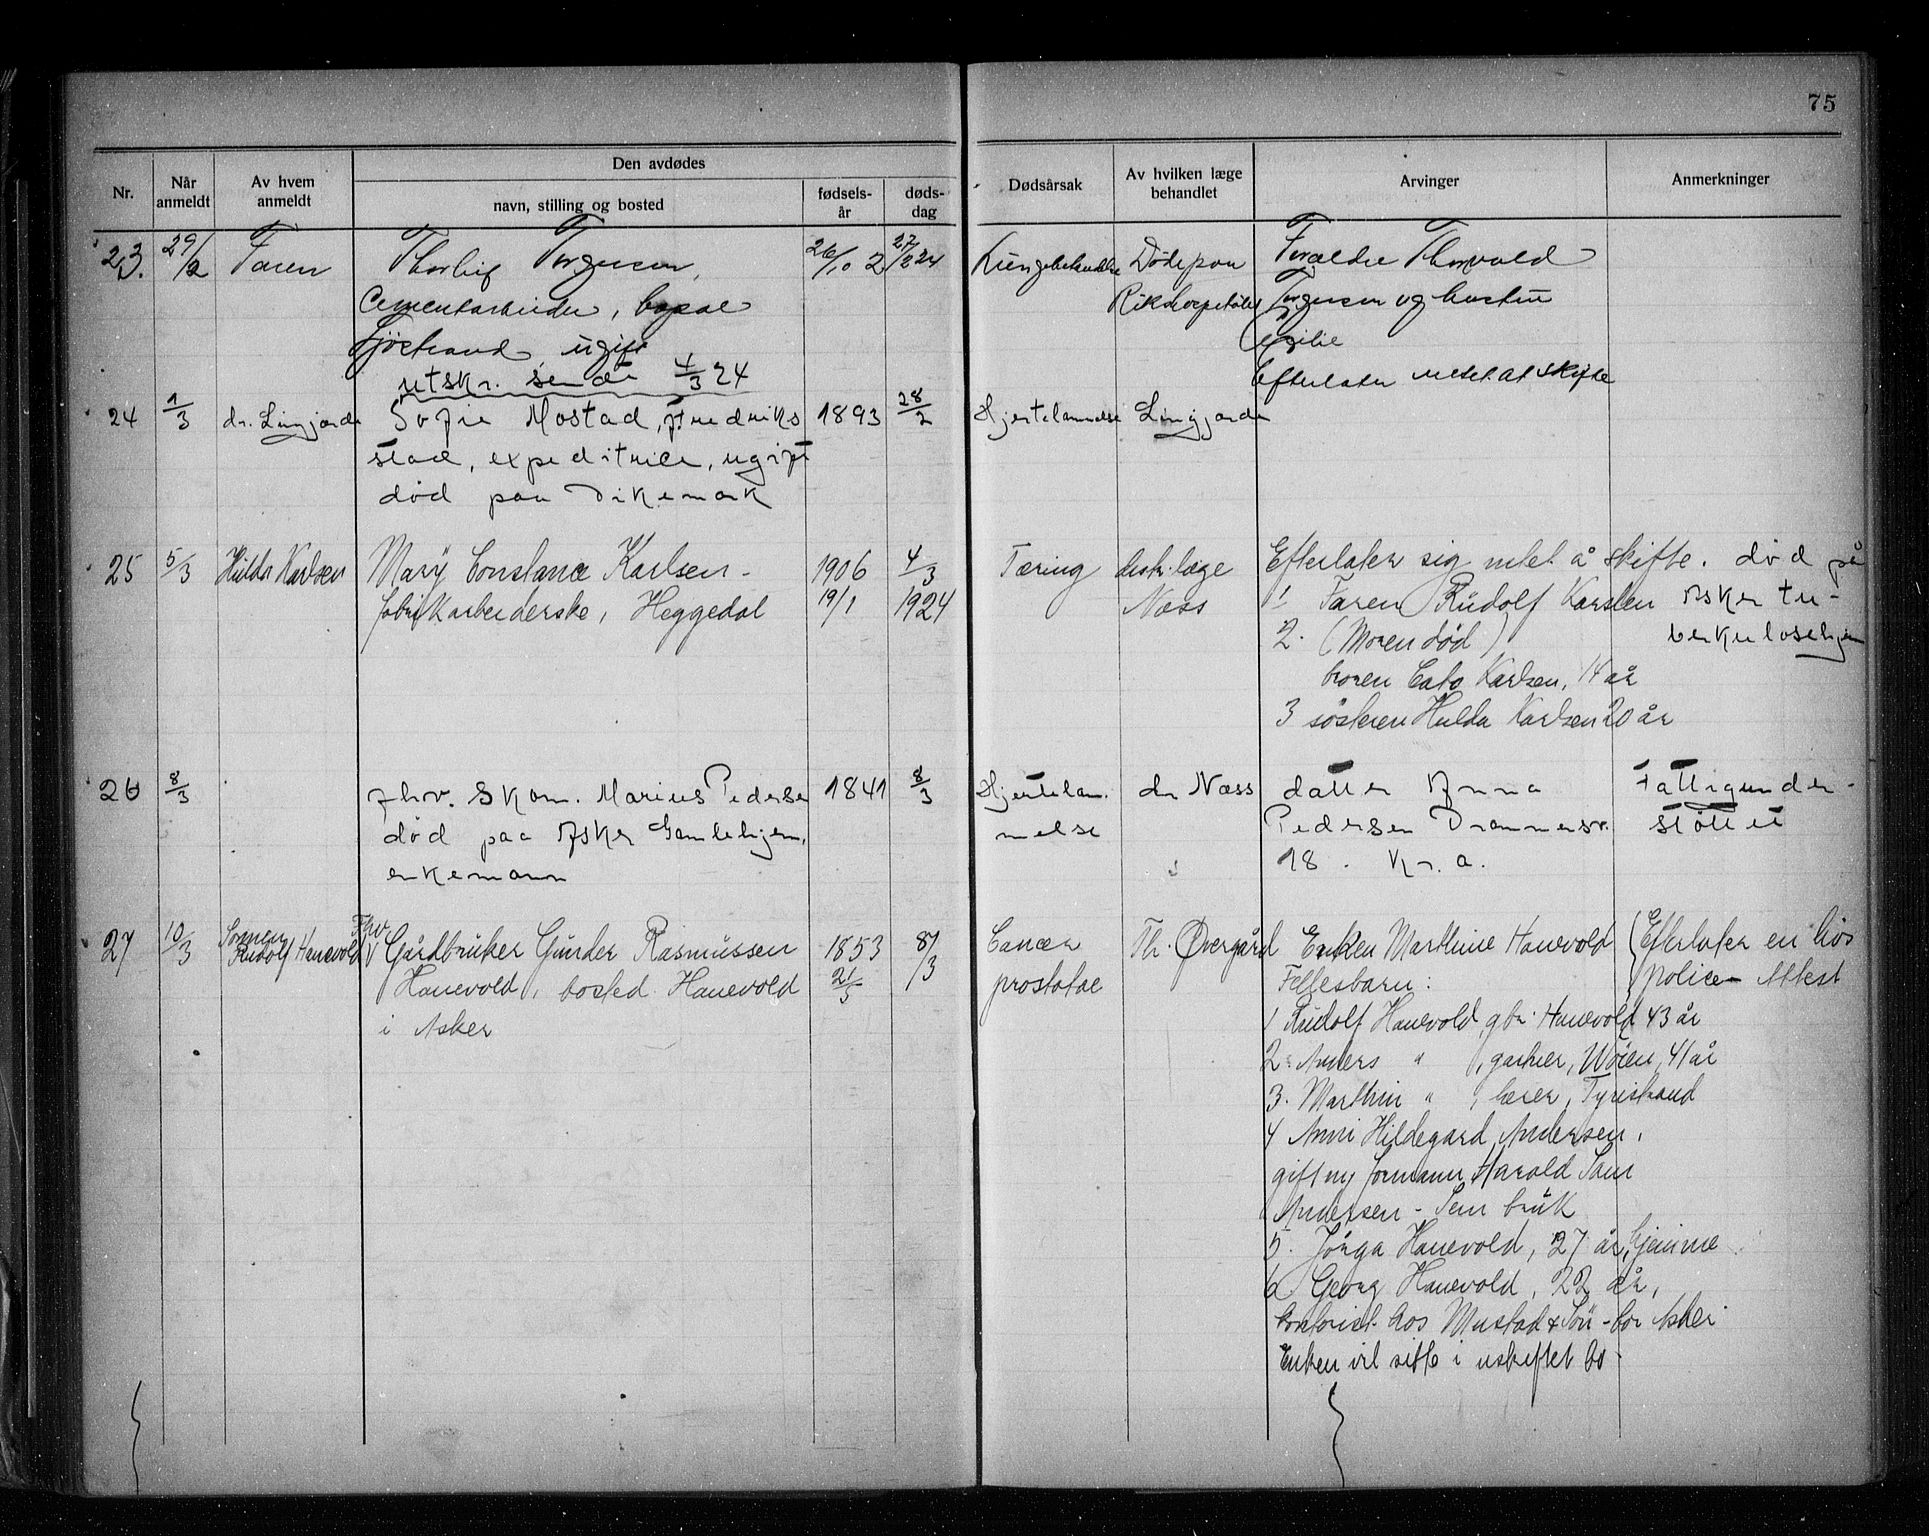 75
Nr.
Når anmeldt
Av hvem anmeldt
Den avdødes
navn, stilling og bosted
fødsels-år
døds-dag
Dødsårsak
Av hvilken læge behandlet
Arvinger
Anmerkninger
23. 29/2 Faren Thorleif Torgersen, 26/10 2 27/2 24 Døde paa Forældre Thorvald
Cementarbeider, Rikshospitalet Torgersen og hustru
ugift
utskr. sendt 4/3 24 Efterlater intet at skifte
24 1/3 dr. Lingjærde Sofie Mostad, Fredriks 1893 28/2 Hjertelammelse Lingjærde
stad, expeditrice, ugift
død paa Dikemark
25 5/3 Hulda Karlsen Mary Constance Karlsen - 1906 4/3 Tæring distr.læge Efterlater sig intet å skifte. død på
fabrikkarbeiderske, Heggedal 19/1 1924 Næss 1 Faren Rudolf Karlsen Asker tu-
2. (Moren død) berkulosehjem
broren Cato Karlsen, 14 år
3 søsteren Hulda Karlsen 20 år
26 8/3 fhv. Skom. Marius Pedersen 1841 8/3 Hjertelam- dr Næss datter Anna Fattigunder-
død paa Asker Gamlehjem, melse Pedersen Drammensv. støttet
enkemann 18. Kr.a.
27 10/3 Sønnen Rudolf Hanevold Fhv. Gårdbruker Gunder Rasmussen 1853 8/3 Cancer Th. Øvergård Enken Marthine Hanevold Efterlater en livs
Hanevold, bosted Hanevold 21/5 prostatae Fellesbarn: police - Attest
i Asker 1 Rudolf Hanevold, gbr. Hanevold 43 år
2. Anders " , gartner, Wøien, 41 år
3. Marthin " , lærer, Tyristrand
4 Anni Hildegard Andersen,
gift m/ formann Harald
Andersen - Sem bruk
5. Hanevold, 27 år, hjemme
6 Georg Hanevold, 22 år,
kontorist hos Mustad & Søn - bor Asker
Enken vil sitte i uskiftet bo -